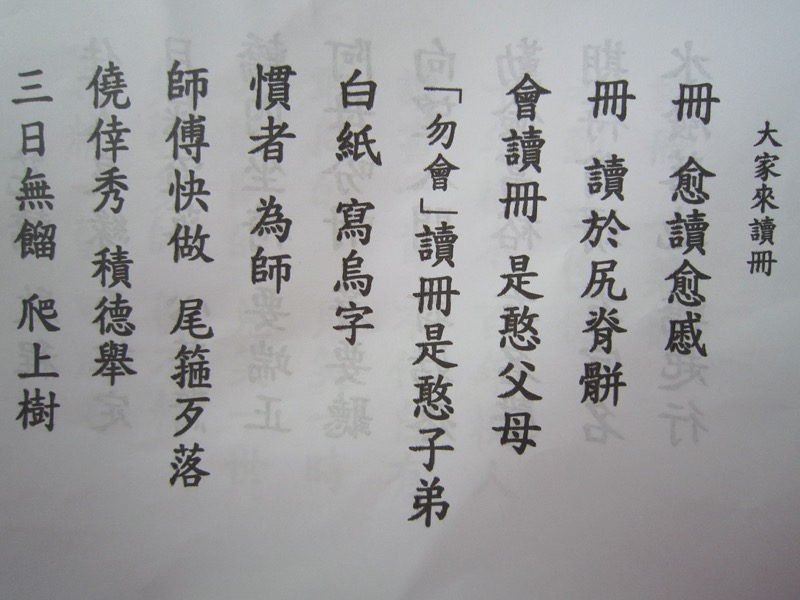 大家來讀冊
冊 愈讀愈慼
冊 讀於尻脊骿
會讀冊 是憨父母
「勿會」讀冊是憨子弟
白紙 寫烏字
慣者 為師
師傅快做 尾箍歹落
僥倖秀 積德舉
三日無餾 爬上樹